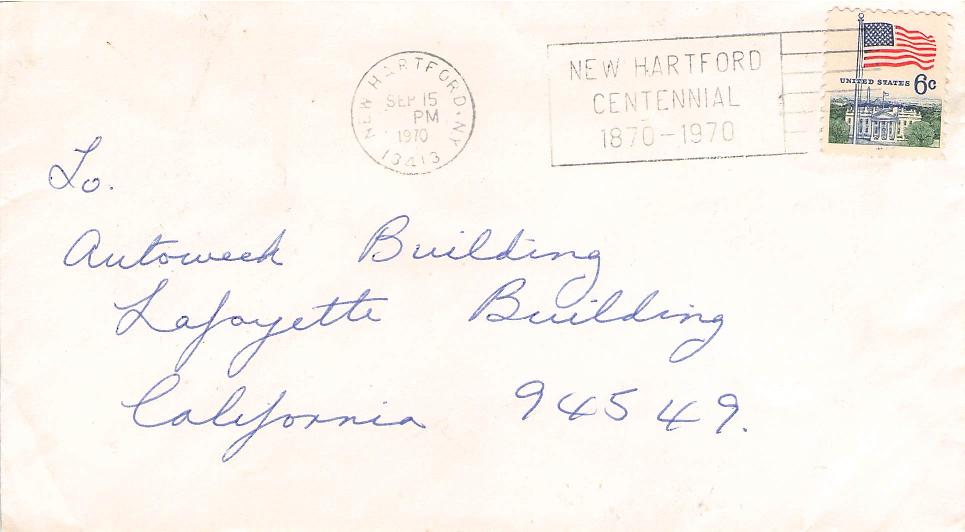 NEW HARTFORD · NY
SEP 15
PM
1970
13413
NEW HARTFORD
CENTENNIAL
1870-1970
UNITED STATES 6c
To.
Autoweek Building
Lafayette Building
California 94549.